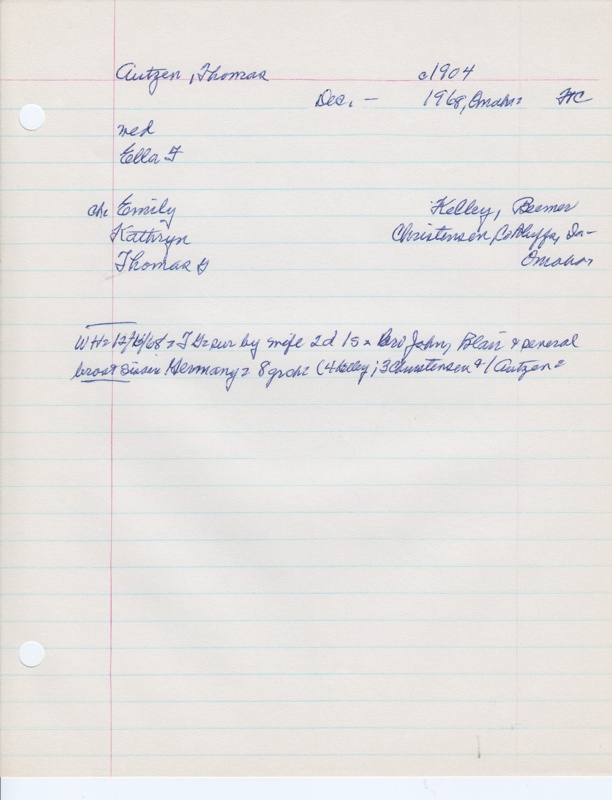 Autzen, Thomas c1904
Dec. - 1968, Omaha
med
Ella F
ch. Emily Kelley, Beemer
Kathryn Christensen, Co Bluffs, Ia-
Thomas G Omaha
WH= 12/ /68= sur by wife 2d 1s = Bro John, Blair & several
bros & sis in Germany= 8 grch= (4 Kelley; 3 Christensen & 1 Autzen=